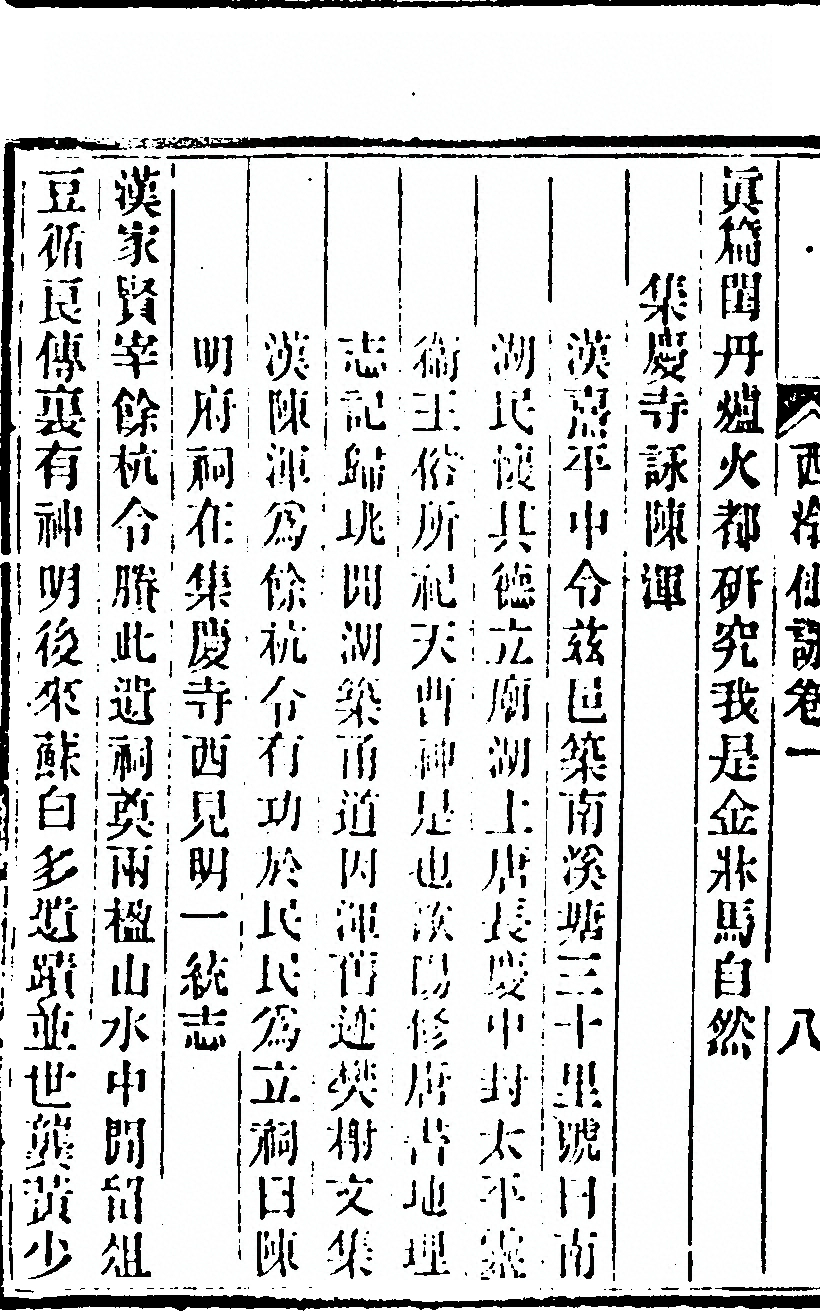 西泠仙詠卷一 八
眞篇閨丹爐火都研究我是金牀馬自然
集慶寺詠陳渾
漢熹平中令茲邑築南溪塘三十里號曰南
湖民懷其德立廟湖上唐長慶中封太平靈
衞王俗所祀天曹神是也歐陽修唐書地理
志記歸珧開湖築甬道因渾舊迹樊榭文集
漢陳渾爲餘杭令有功於民民爲立祠曰陳
明府祠在集慶寺西見明一統志
漢家賢宰餘杭令賸此遺祠奠兩楹山水中閒留俎
豆循良傳裏有神明後來蘇白多遺蹟並世龔黃少